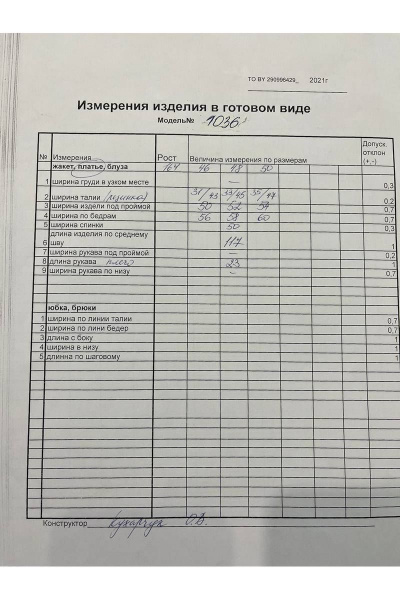 ТО BY 290996429_ 2021г
Измерения изделия в готовом виде
Модель№ 1036
№ Измерения Рост Величина измерения по размерам Допуск. отклон (+,-)
жакет, платье, блуза 164 46 48 50
1 ширина груди в узком месте — 0,3
2 ширина талии (резинка) 31/43 33/45 35/47 0,2
3 ширина издели под проймой 50 52 54 0,7
4 ширина по бедрам 56 58 60 0,7
5 ширина спинки 50 0,3
длина изделия по среднему
6 шву 117 1
7 ширина рукава под проймой — 0,2
8 длина рукава плечо 23 1
9 ширина рукава по низу — 0,7
юбка, брюки
1 ширина по линии талии 0,7
2 ширина по лини бедер 0,7
3 длина с боку 1
4 ширина в низу 1
5 длинна по шаговому 1
Конструктор Кухарчук О.В.